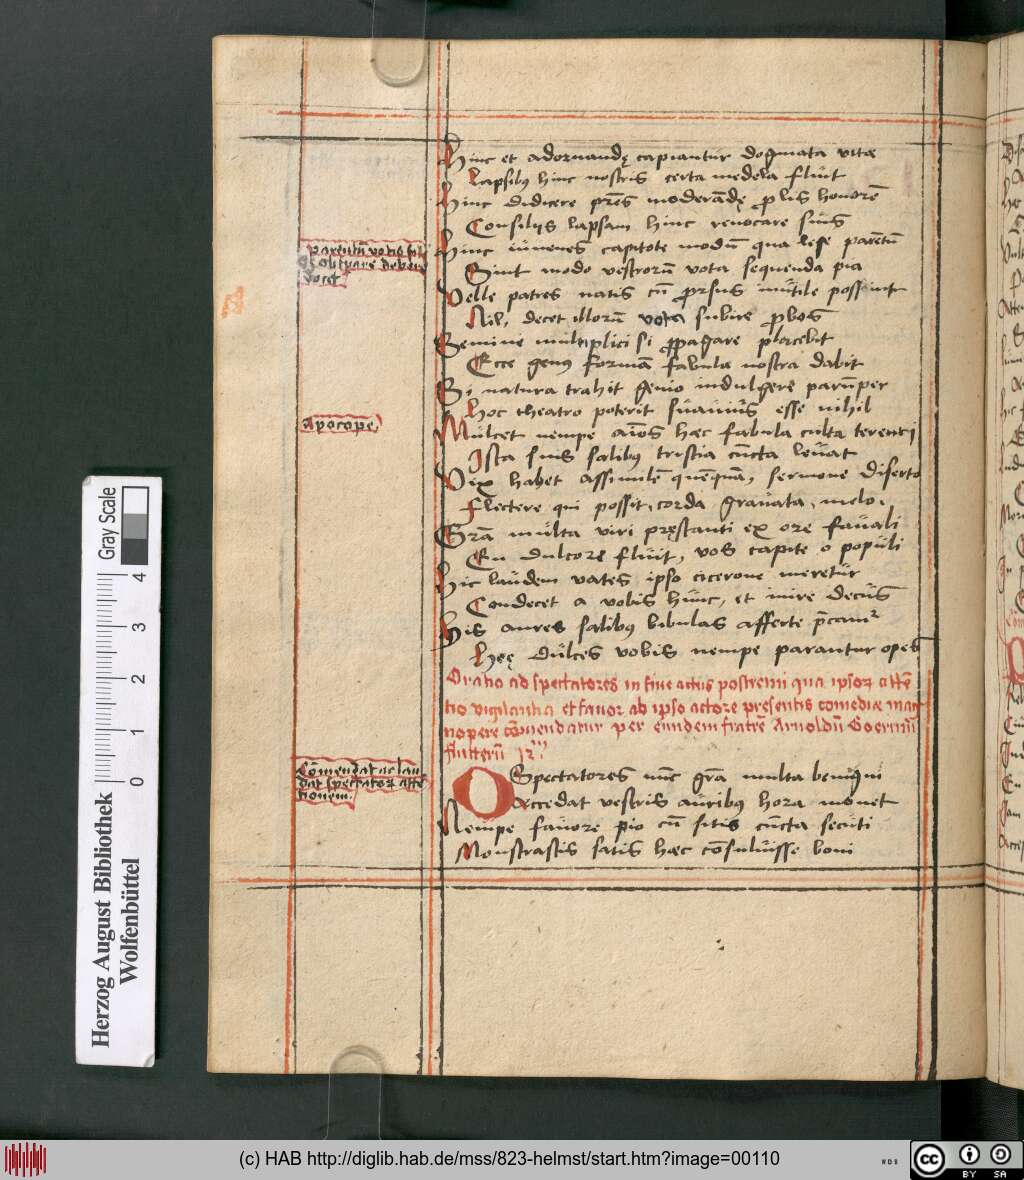 Hinc et adornandę capiantur dogmata vitæ
Lapsibꝯ hinc nostris certa medela fluit
Hinc didicere pr̄es moderādę ꝓlis honorē
Consilijs lapsam hinc reuocare suūs
Hinc iuuenes capitote modū qua lege parētū
Sint modo vestrorū vota sequenda pia
Velle patres natis cū ꝓrsus inutile possint
Nil, decet illorū vota subire ꝓbos
Semine multiplici si ꝓpagare placebit
Ecce genꝯ formā fabula nostra dabit
Si natura trahit genio indulgere parūper
Hoc theatro poterit suauius esse nihil
Mulcet nempe aīos hæc fabula culta terenti
Ista suis salibus tristia cūcta leuat
Vix habet assimilē quēquā, sermone diserto
Flectere qui possit, corda grauata, melo.
Grā multa viri pręstanti ex ore fauali
En dulcore fluit, vos capite o populi
Hic laudem vates ipso cicerone meretur
Condecet a vobis hunc, et mire decus
His aures salibꝯ bibulas afferte p̄camʳ
Hęę dulces vobis nempe parantur opes
Oratio ad spectatores in fine actus postremi qua ipsoꝝ attē
tio vigilantia et fauor ab ipso actore presentis comediæ mag
nopere cōmendatur per eundem fratrē Arnoldū
O Spectatores nūc grā multa benigni
Accedat vestris auribꝯ hora monet
Nempe fauore pio cū sitis cūcta secuti
Monstrastis satis hæc cōsuluisse boni
parentū votis fili
os obtēpare debere
docet
Apocope,
Cōmendat ac lau
dat spectatoꝝ attē
tionem.
Herzog August Bibliothek
Wolfenbüttel
0 1 2 3 4
Gray Scale
(c) HAB http://diglib.hab.de/mss/823-helmst/start.htm?image=00110
cc BY SA